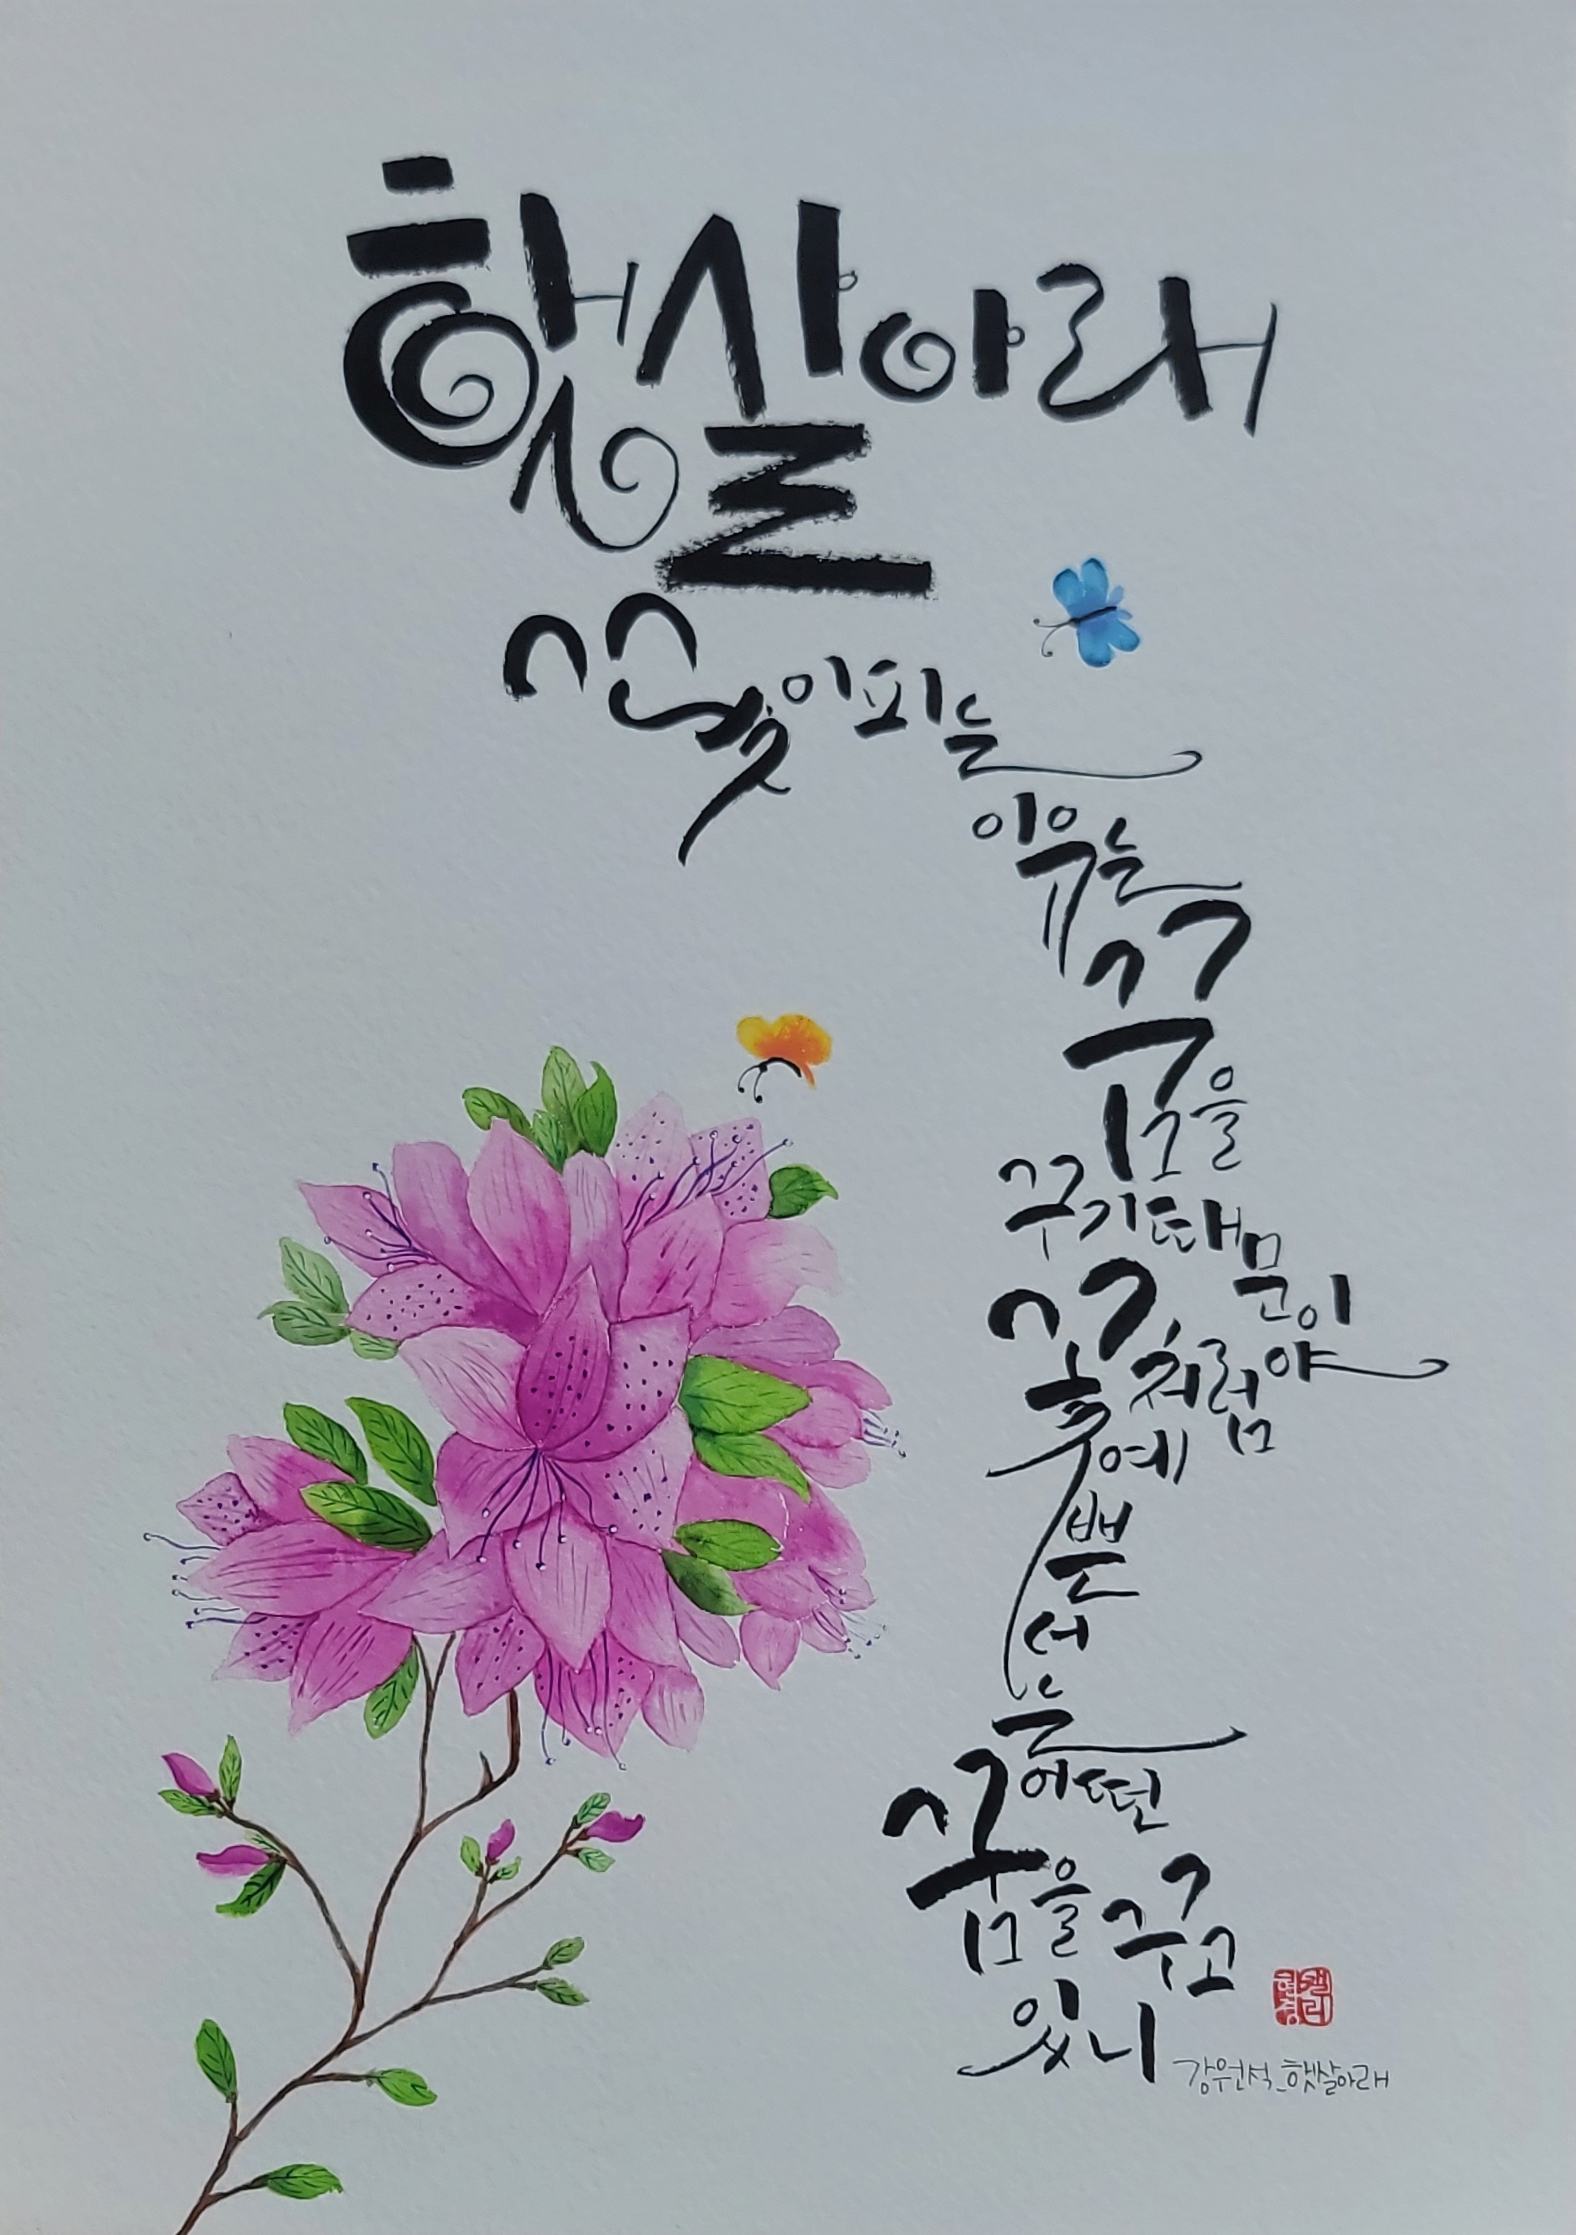 햇살아래
꽃이 피는
이유는
꿈을
꾸기 때문이야
꽃처럼
예쁜
너는
어떤
꿈을 꾸고
있니
강원석_햇살아래
캘리